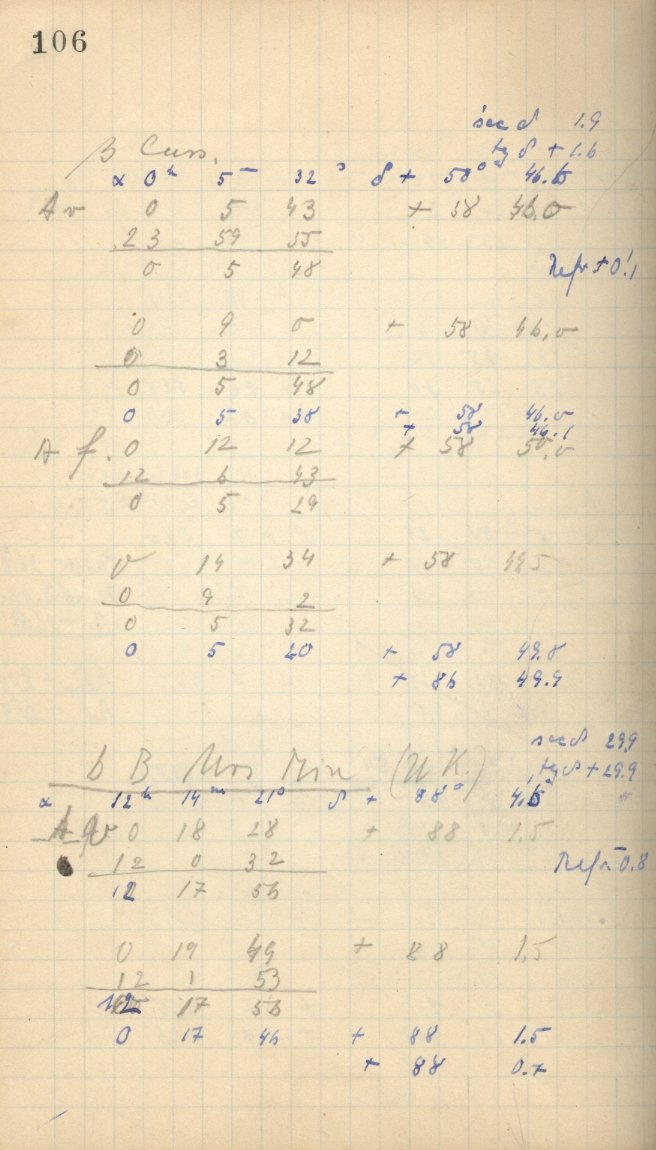 106
sec δ 1.9
β Cass. tg δ + 1.6
α 0ʰ 5ᵐ 32ˢ δ + 58° 46.6
A v 0 5 43 + 58 46.0
23 59 55
0 5 48 Refr + 0.'1
0 9 0 + 58 46.0
0 3 12
0 5 48
0 5 38 + 58 46.0
+ 58 46.1
A f. 0 12 12 + 58 50.0
12 6 43
0 5 29
0 14 34 + 58 49.5
0 9 2
0 5 32
0 5 20 + 58 49.8
+ 86 49.9
sec δ 29.9
b B Urs Min (U.K.) tg δ + 29.9
α 12ʰ 14ᵐ 21ˢ δ + 88° 4.'6
A v 0 18 28 + 88 1.5
12 0 32
12 17 56 Refr - 0.8
0 19 49 + 88 1.5
12 1 53
12 17 56
0 17 46 + 88 1.5
+ 88 0.7